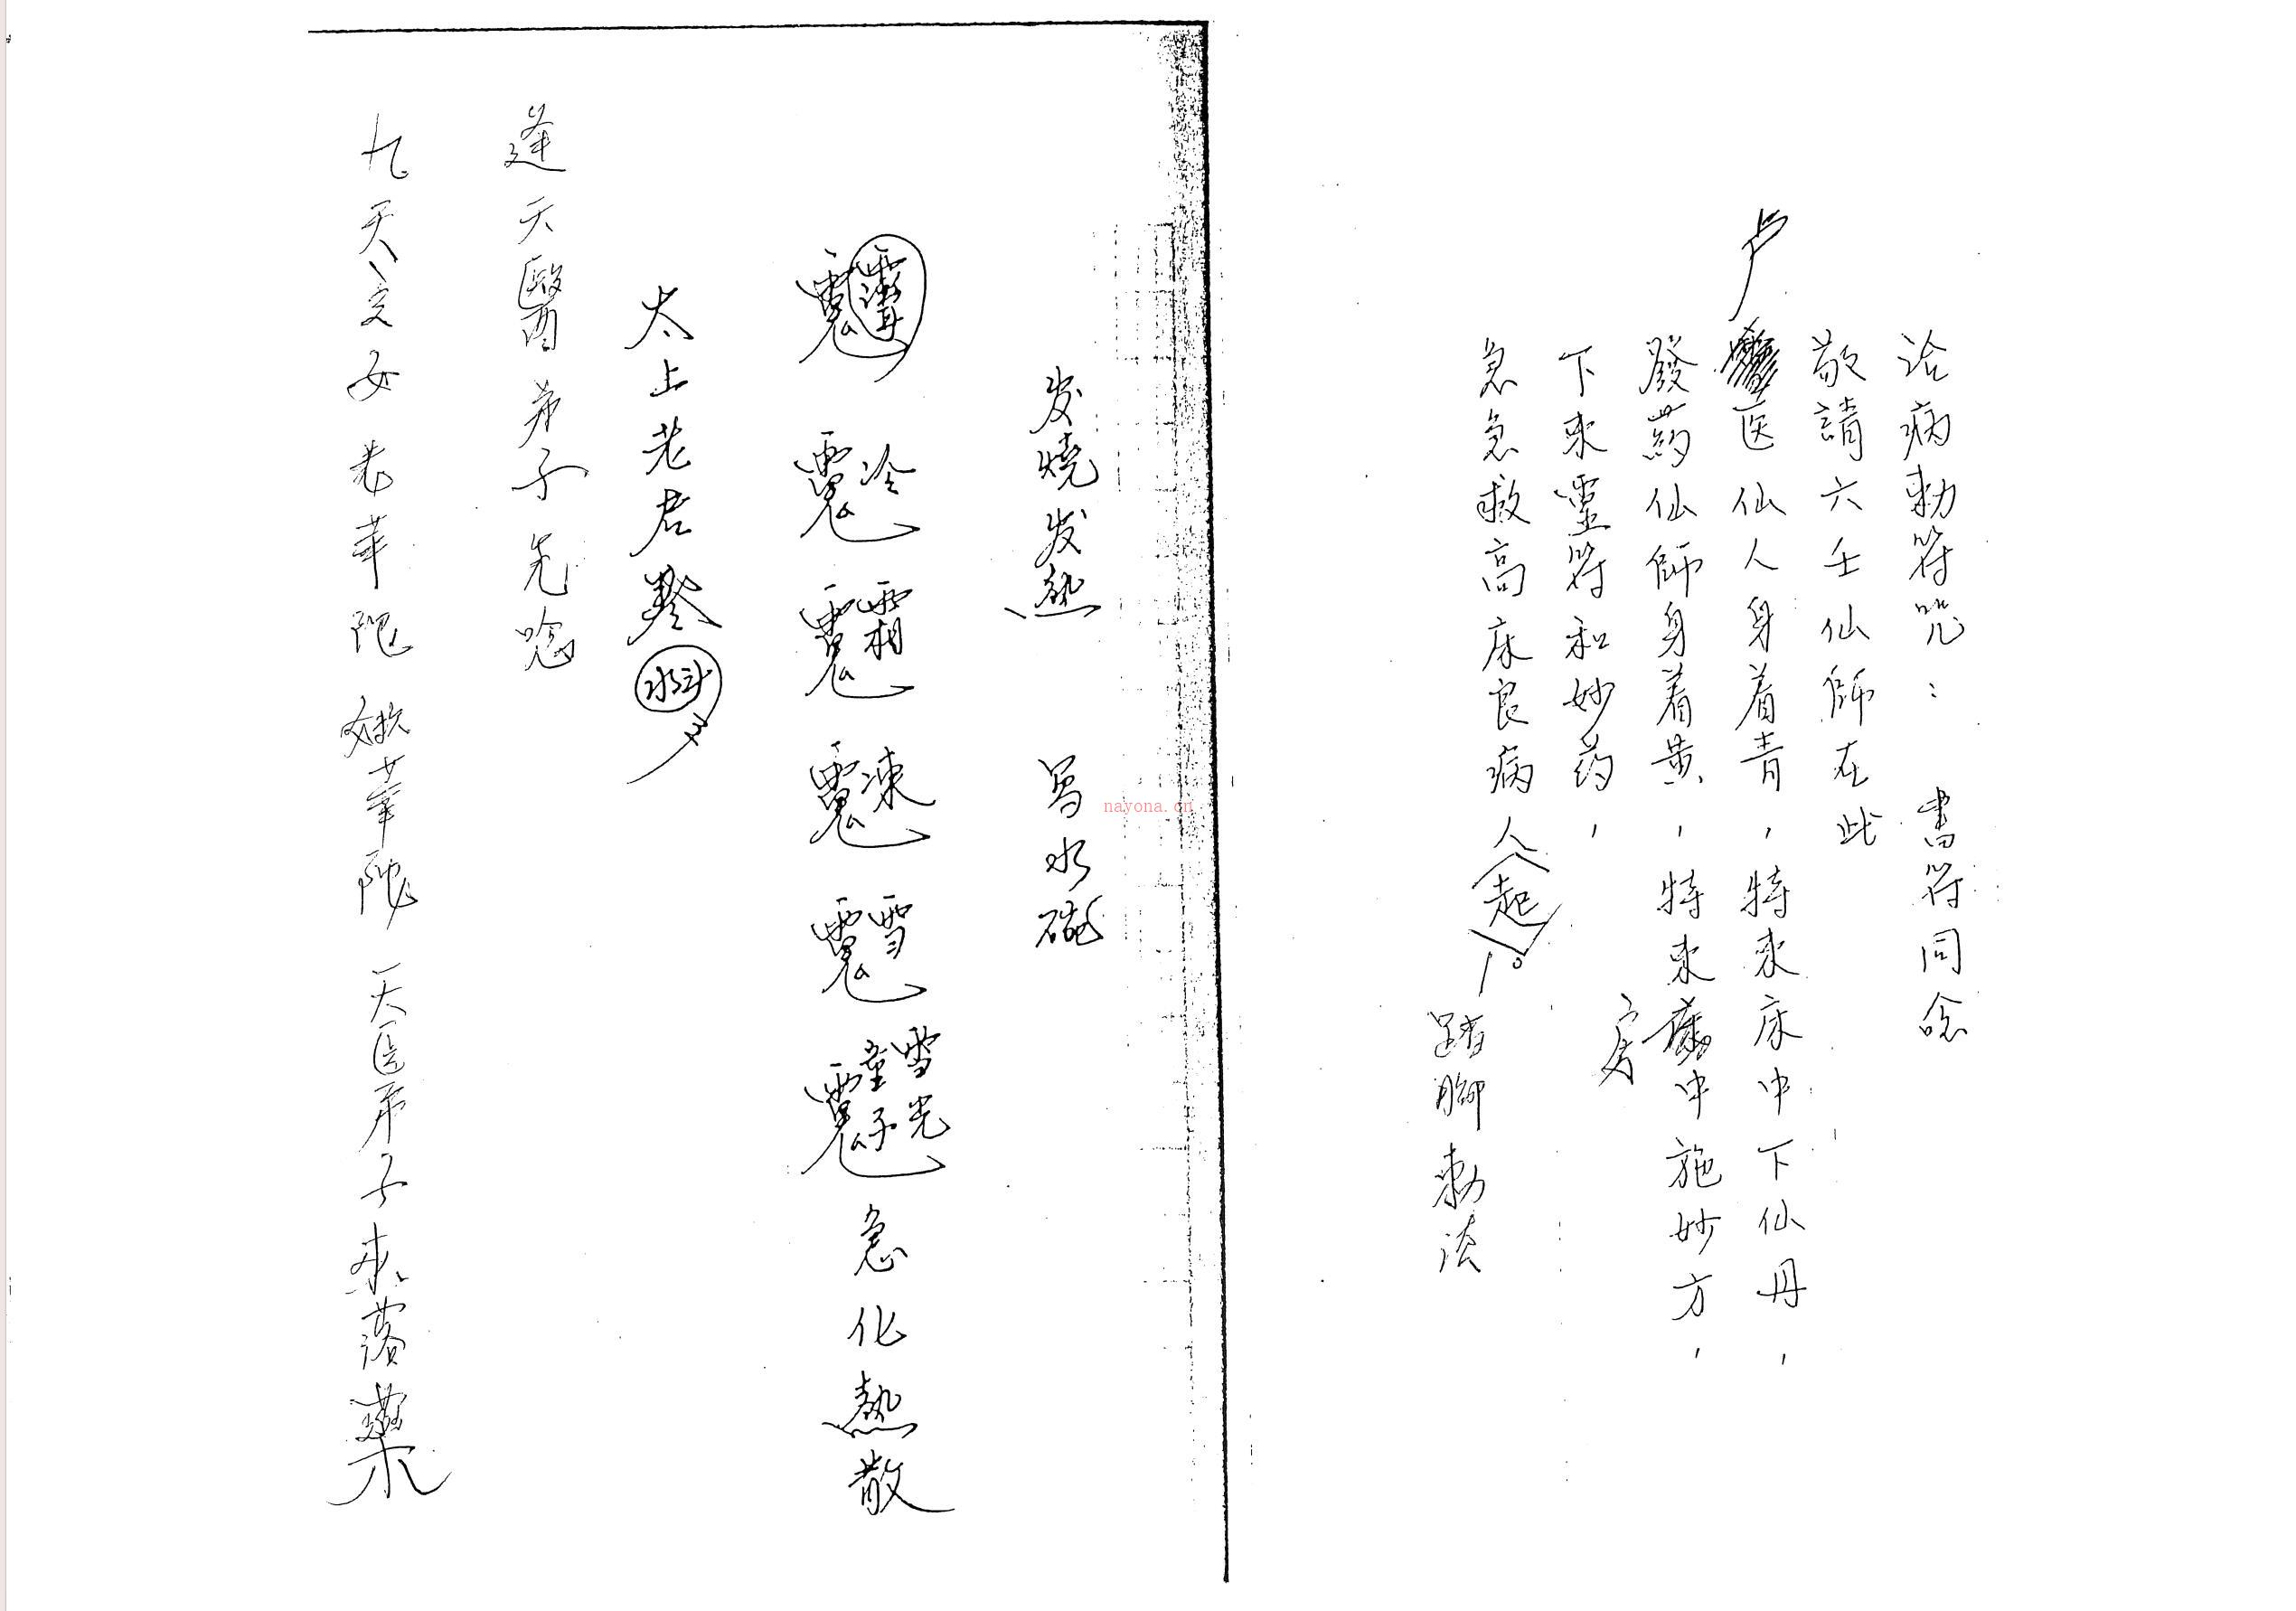 治病勅符咒：書符同念
敬請六壬仙師在此
卢医仙人身着青，特來床中下仙丹，
發药仙師身着黄，特來房中施妙方，
下來靈符和妙药，
急急救高床良病人起。
踏脚勅法
发燒发熱 写水碗
冷 霜 凍 雪 雪光童子 急化熱散
太上老君
逢天醫弟子先唸
九天玄女老華陀 華陀天医弟子來落藥
nayona.cn